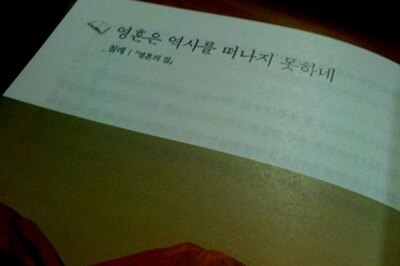 영혼은 역사를 떠나지 못하네
_칠레 | 『영혼의 집』